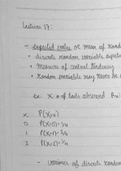 Lecture 17:
- expected value or mean of rando
- discrete random variable expecte
- Measure of central tendency
- Random variable may never be e
ex: X = # of heads observed
x P(X=x)
0 P(X=0)= 1/4
1 P(X=1)= 2/4
2 P(X=2)= 1/4
- variance of discrete random